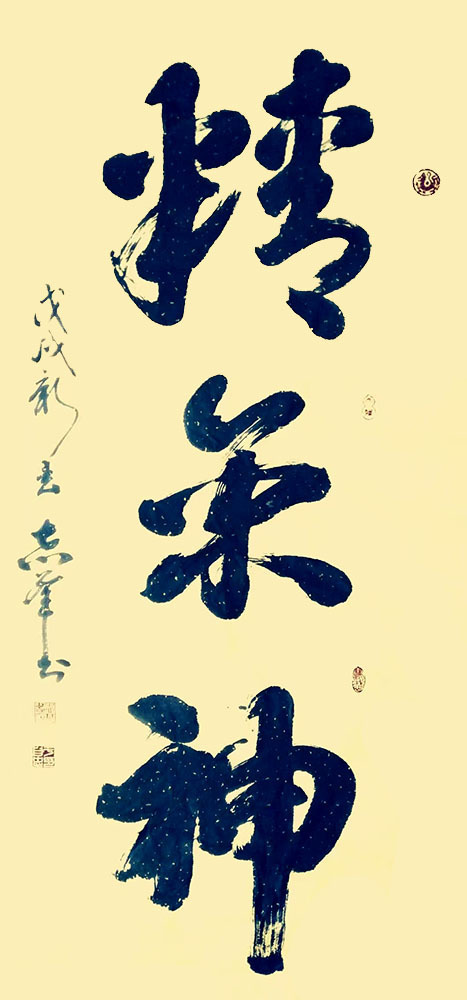 精氣神
戊戌新春志峯书